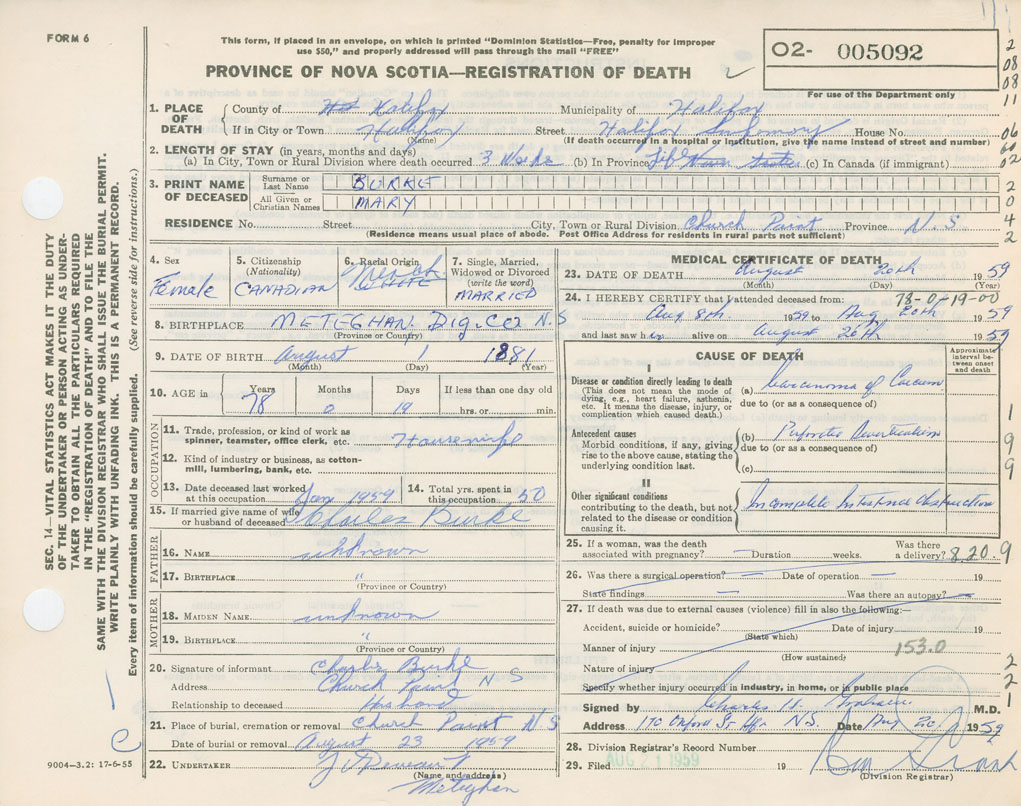 FORM 6
This form, if placed in an envelope, on which is printed "Dominion Statistics—Free, penalty for improper
use $50," and properly addressed will pass through the mail "FREE"
O2- 005092
For use of the Department only
PROVINCE OF NOVA SCOTIA—REGISTRATION OF DEATH
1. PLACE OF DEATH { County of Halifax Municipality of Halifax
If in City or Town Halifax Street Halifax Infirmary House No.
(Name) (If death occurred in a hospital or institution, give the name instead of street and number)
2. LENGTH OF STAY (in years, months and days)
(a) In City, Town or Rural Division where death occurred 3 Weeks (b) In Province Life (c) In Canada (if immigrant)
3. PRINT NAME OF DECEASED
Surname or Last Name BURKE
All Given or Christian Names MARY
RESIDENCE No. Street City, Town or Rural Division Church Point Province N.S
(Residence means usual place of abode. Post Office Address for residents in rural parts not sufficient)
4. Sex Female
5. Citizenship (Nationality) CANADIAN
6. Racial Origin French WHITE
7. Single, Married, Widowed or Divorced (write the word) MARRIED
8. BIRTHPLACE METEGHAN. Dig. Co N.S
(Province or Country)
9. DATE OF BIRTH August 1 1881
(Month) (Day) (Year)
10. AGE in { Years 78 Months 0 Days 19 If less than one day old hrs. or min.
OCCUPATION
11. Trade, profession, or kind of work as spinner, teamster, office clerk, etc. Housewife
12. Kind of industry or business, as cotton-mill, lumbering, bank, etc.
13. Date deceased last worked at this occupation Jan 1959 14. Total yrs. spent in this occupation 50
15. If married give name of wife or husband of deceased Charles Burke
FATHER
16. NAME unknown
17. BIRTHPLACE "
(Province or Country)
MOTHER
18. MAIDEN NAME unknown
19. BIRTHPLACE "
(Province or Country)
20. Signature of informant Charles Burke
Address Church Point N S
Relationship to deceased Husband
21. Place of burial, cremation or removal Church Point N.S
Date of burial or removal August 23 1959
22. UNDERTAKER
(Name and address)
Meteghan
9004—3.2: 17-6-55
MEDICAL CERTIFICATE OF DEATH
23. DATE OF DEATH August 20th 1959
(Month) (Day)
24. I HEREBY CERTIFY that I attended deceased from: 78-0-19-00
Aug 8th 1959 to Aug 20th 1959
and last saw her alive on August 20th 1959
CAUSE OF DEATH
Approximate interval between onset and death
I
Disease or condition directly leading to death
(This does not mean the mode of dying, e.g., heart failure, asthenia, etc. It means the disease, injury, or complication which caused death.)
(a) Carcinoma of Caecum
due to (or as a consequence of)
Antecedent causes
Morbid conditions, if any, giving rise to the above cause, stating the underlying condition last.
(b)
due to (or as a consequence of)
(c)
II
Other significant conditions
contributing to the death, but not related to the disease or condition causing it.
Incomplete Intestinal Obstruction
25. If a woman, was the death associated with pregnancy? — Duration weeks. Was there a delivery? 8.20.9
26. Was there a surgical operation? — Date of operation — 19
State findings — Was there an autopsy? —
27. If death was due to external causes (violence) fill in also the following:—
Accident, suicide or homicide? Date of injury 19
(State which)
Manner of injury 153.0
(How sustained)
Nature of injury
Specify whether injury occurred in industry, in home, or in public place
Signed by Charles H. M.D.
Address 170 Oxford St Hfx N.S. Date Aug 20 1959
28. Division Registrar's Record Number
29. Filed AUG 21 1959 19
(Division Registrar)
SEC. 14—VITAL STATISTICS ACT MAKES IT THE DUTY
OF THE UNDERTAKER OR PERSON ACTING AS UNDER-
TAKER TO OBTAIN ALL THE PARTICULARS REQUIRED
IN THE "REGISTRATION OF DEATH" AND TO FILE THE
SAME WITH THE DIVISION REGISTRAR WHO SHALL ISSUE THE BURIAL PERMIT.
WRITE PLAINLY WITH UNFADING INK. THIS IS A PERMANENT RECORD.
Every item of information should be carefully supplied. (See reverse side for instructions.)
2
08
08
11
06
60
02
2
0
4
2
1
9
9
2
2
1
2